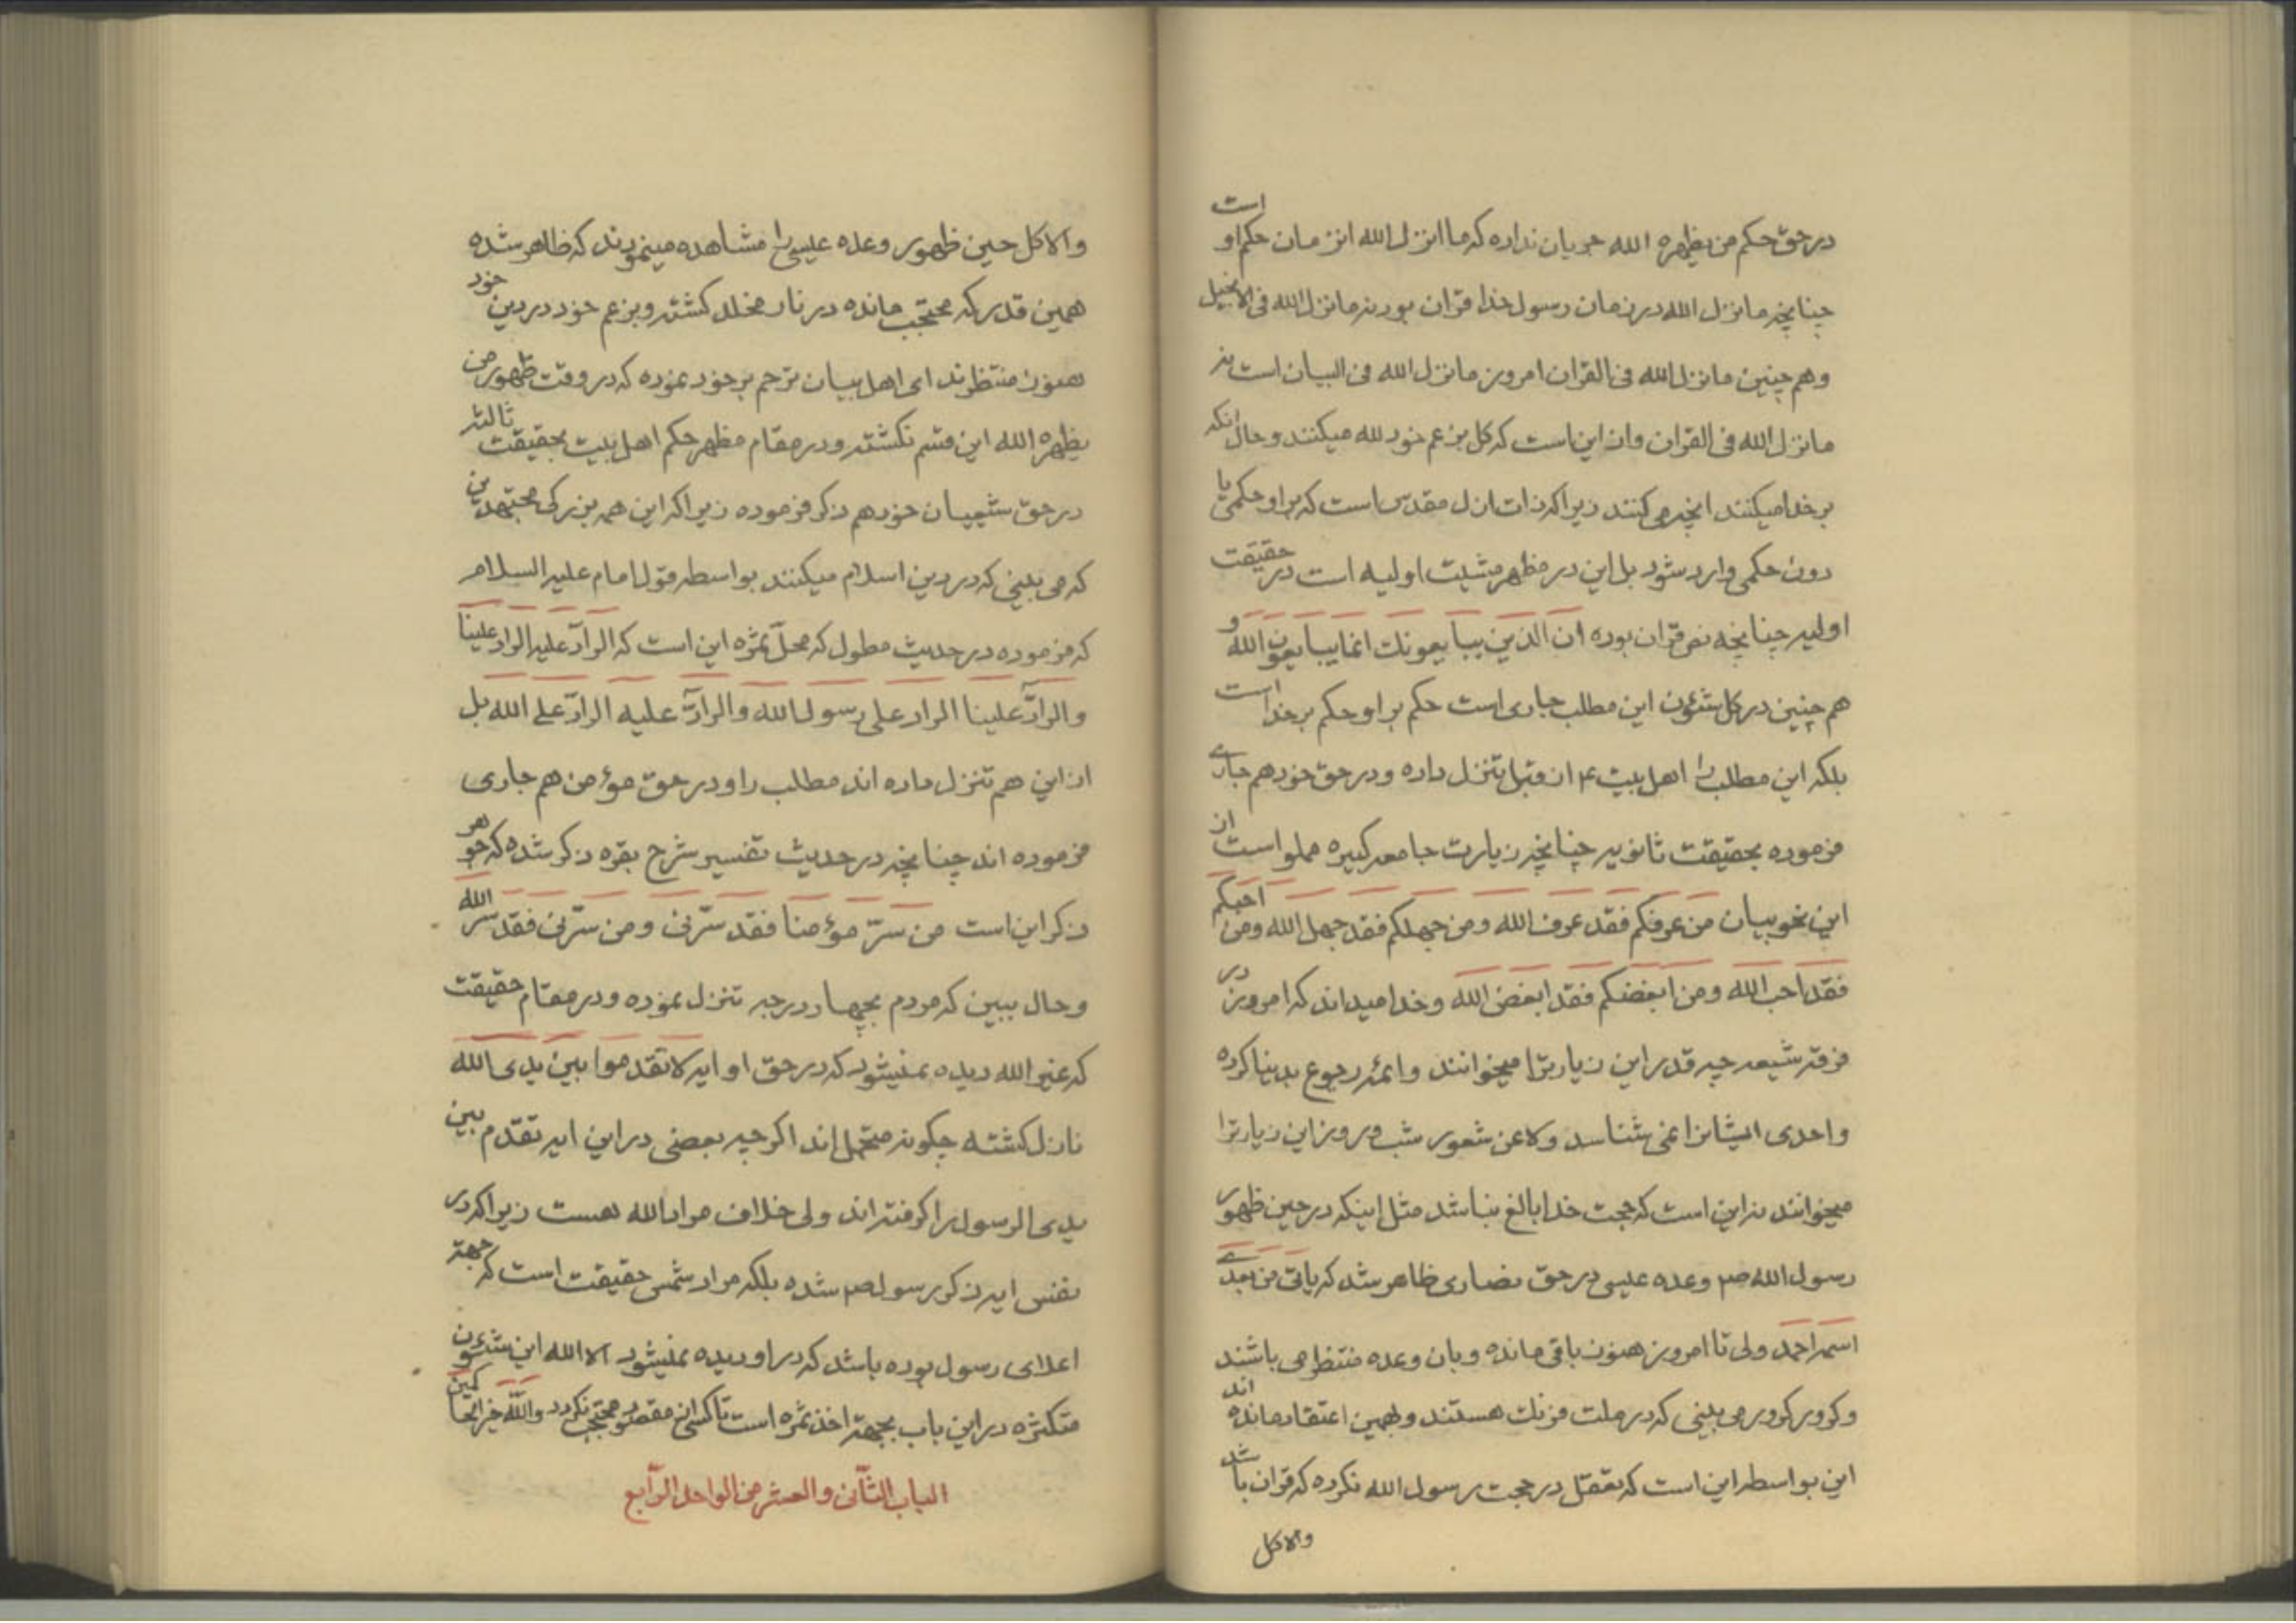 در حق حکم من یظهره الله جریان نداره که ما انزل الله انزمان حکم او است
چنانچه ما نزل الله در زمان رسول خدا قران بود نه ما نزل الله فی الانجیل
و هم چنین ما نزل الله فی القران امروز ما نزل الله فی البیان است نه
ما نزل الله فی القران و ان این است که کل بزعم خود لله میکنند و حال انکه
بر خدا میکنند انچه می کنند زیرا که ذات ازل مقدس است که بر او حکمی یا
دون حکمی وارد شود بل این در مظهر مشیت اولیه است در حقیقت
اولیه چنانچه نص قران بوده ان الذین یبایعونک انما یبایعون الله و
هم چنین در کل شئون این مطلب جاری است حکم بر او حکم بر خدا است
بلکه این مطلب را اهل بیت ع از قبل تنزل داده و در حق خود هم جاری
فرموده بحقیقت ثانویه چنانچه زیارت جامعه کبیره مملو است از
این نحو بیان من عرفکم فقد عرف الله و من جهلکم فقد جهل الله و من احبکم
فقد احب الله و من ابغضکم فقد ابغض الله و خدا میداند که امروز در
فرقه شیعه چه قدر این زیارترا میخوانند و ائمه رجوع بدنیا کرده
و احدی ایشانرا نمی شناسد و لا عن شعور شب و روز این زیارترا
میخوانند نه این است که حجت خدا بالغ نباشد مثل اینکه در حین ظهور
رسول الله ص وعده عیسی در حق نصاری ظاهر شد که یاتی من بعدی
اسمه احمد ولی تا امروز هنوز باقی مانده و بان وعده منتظر می باشند
و کرور کرور می بینی که در ملت فرنک هستند و بهمین اعتقاد مانده اند
این بواسطه این است که تعقل در حجت رسول الله نکرده که قران باشد
والا کل
والا کل حین ظهور وعده عیسی را مشاهده مینمودند که ظاهر شده
همین قدر که محتجب مانده در نار مخلد کشته و بزعم خود در دین خود
هنوز منتظرند ای اهل بیان ترحم بر خود نموده که در وقت ظهور من
یظهره الله این قسم نکشته و در مقام مظهر حکم اهل بیت بحقیقت ثالثه
در حق شیعیان خود هم ذکر فرموده زیرا که این همه بزرکی مجتهدین
که می بینی که در دین اسلام میکنند بواسطه قول امام علیه السلام
که فرموده در حدیث مطول که محل ثمره این است که الراد علیه الراد علینا
والراد علینا الراد علی رسول الله والراد علیه الراد علی الله بل
از این هم تنزل داده اند مطلب را و در حق مؤمن هم جاری
فرموده اند چنانچه در حدیث تفسیر شرح بقره ذکر شده که جوهر
ذکر این است من سر مؤمنا فقد سرنی و من سرنی فقد سر الله
و حال ببین که مردم بچهار درجه تنزل نموده و در مقام حقیقت
که غیر الله دیده نمیشود که در حق او ایه لا تقدموا بین یدی الله
نازل کشته چکونه متحمل اند اکر چه بعضی در این ایه تقدم بین
یدی الرسول را کرفته اند ولی خلاف مراد الله هست زیرا که در
نفس ایه ذکر رسول ص شده بلکه مراد شمس حقیقت است که جهة
اعلای رسول بوده باشد که در او دیده نمیشود الا الله این شئون
متکثره در این باب بجهة اخذ ثمره است تا کسی از مقصود محتجب نکردد والله
الباب الثانی والعشر من الواحد الرابع